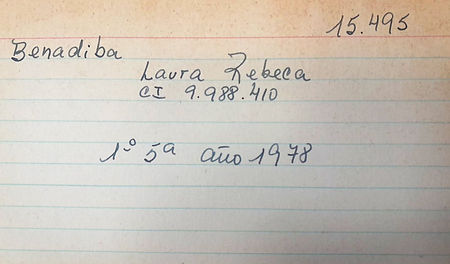 15.495
Benadiba
Laura Rebeca
CI 9.988.410
1º 5ª año 1978